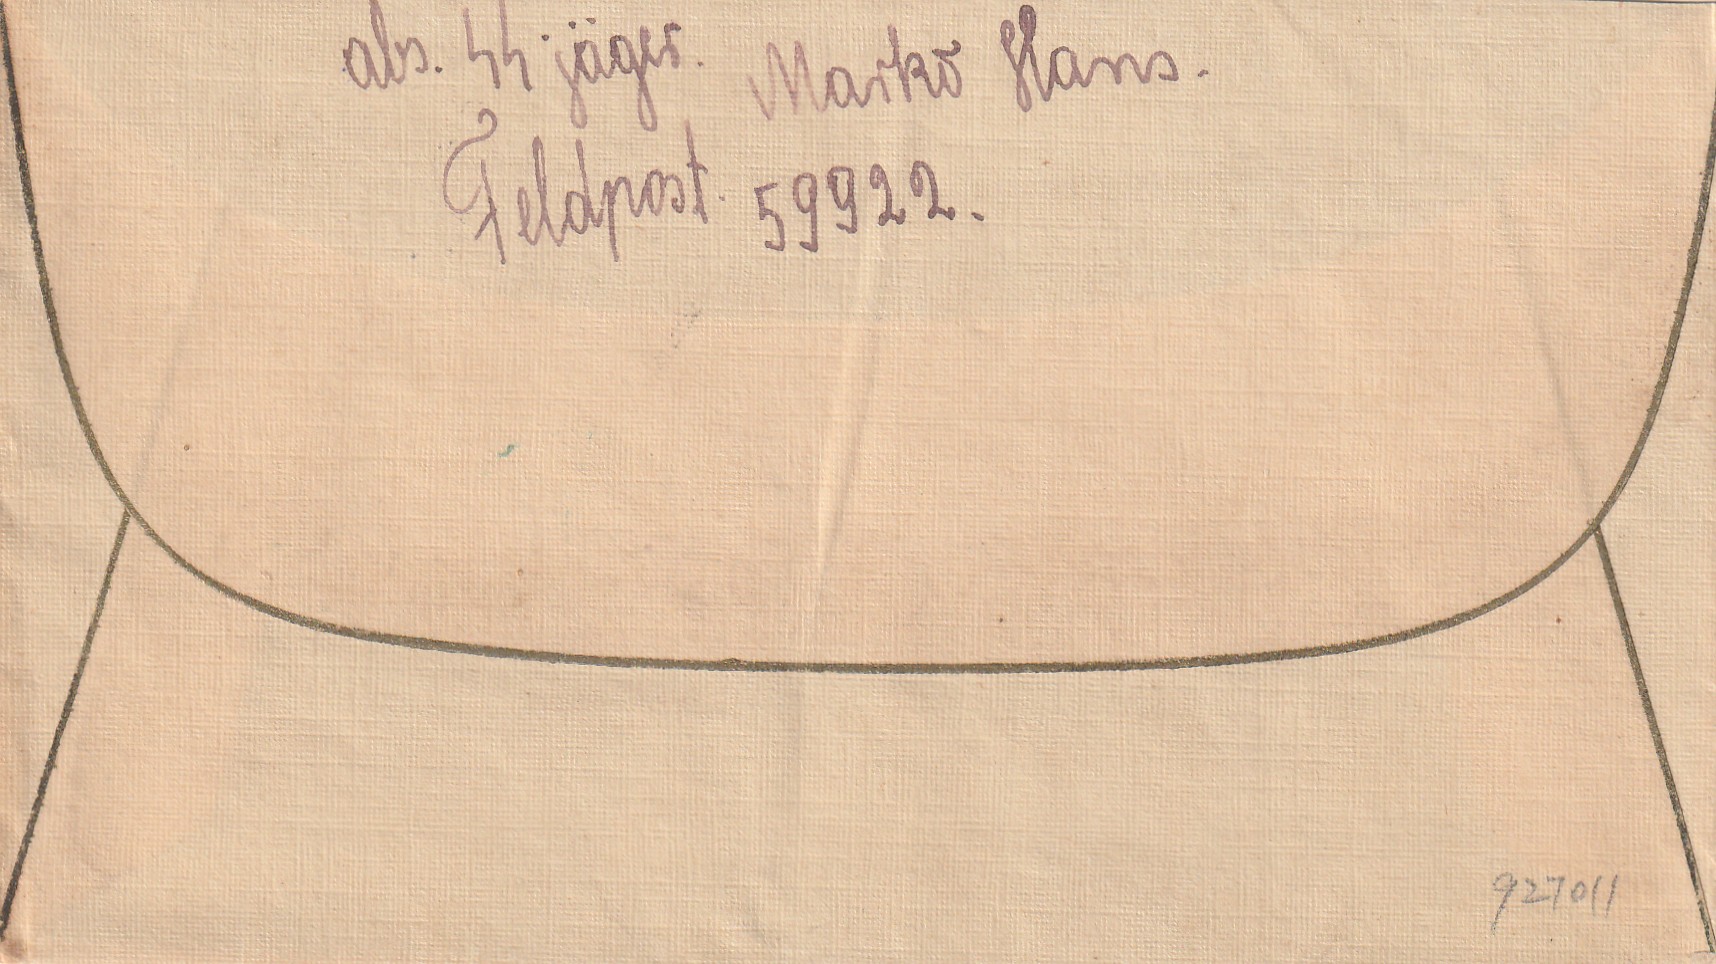 abs. ϟϟ jäger. Markó Hans.
Feldpost. 59922.
927011